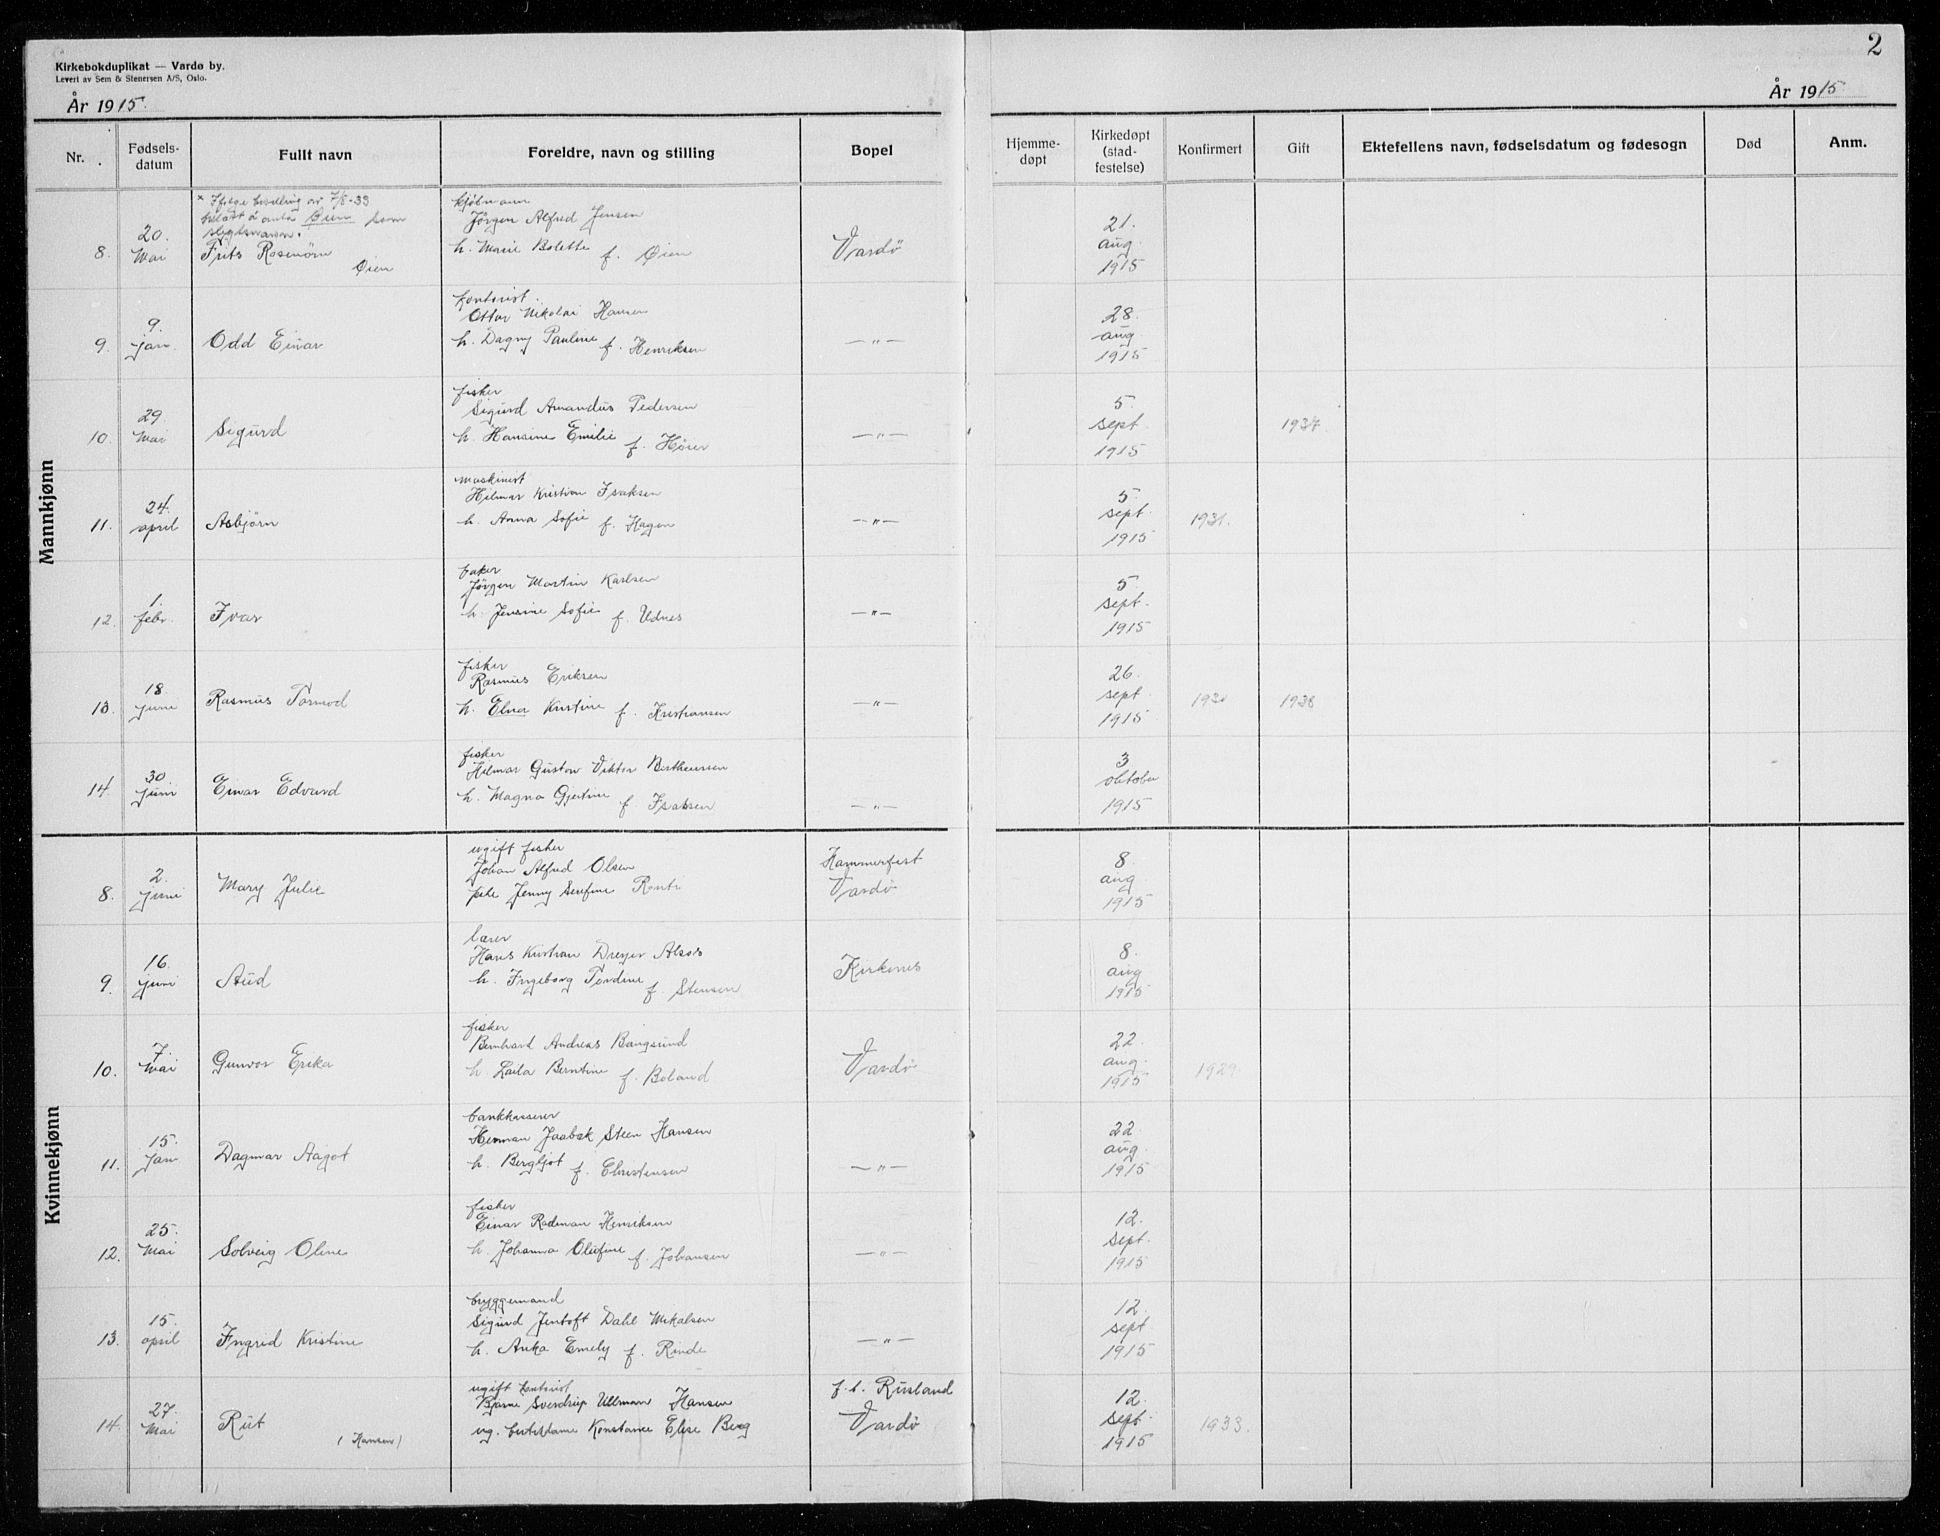 Kirkebokduplikat — Vardø by.
Levert av Sem & Stenersen A/S, Oslo.
2
År 1915.
År 1915.
Nr. Fødsels-datum Fullt navn Foreldre, navn og stilling Bopel Hjemme-døpt Kirkedøpt (stad-festelse) Konfirmert Gift Ektefellens navn, fødselsdatum og fødesogn Død Anm.
Mannkjønn
× Ifølge bevilling av 7/8-33
tillatt å anta Øien som
slegtsnavn.
kjøbmann
Jörgen Alfred Jensen
8. 20. Mai Frits Rosenörn Øien h. Marie Bolette f. Øien Vardø 21. aug. 1915
kontorist.
Ottar Nikolai Hansen
9. 9. jan. Odd Einar h. Dagny Pauline f. Henriksen —"— 28. aug. 1915
fisker
Sigurd Amandus Pedersen
10. 29. Mai Sigurd h. Hansine Emilie f. —"— 5. sept. 1915 1937.
maskinist
Hilmar Kristian Isaksen
11. 24. april Asbjörn h. Anna Sofie f. Hagen —"— 5. sept. 1915 1931.
baker
Jörgen Martin Karlsen
12. 1. febr. Ivar h. Jensine Sofie f. Udnes —"— 5. sept. 1915
fisker
Rasmus Eriksen
13. 18. juni Rasmus Tormod h. Elna Kristine f. Kristiansen —"— 26. sept. 1915 1938
fisker
Hilmar Gustav Viktor Bertheussen
14. 30. juni Einar Edvard h. Magna Gjertine f. Isaksen —"— 3 oktober 1915
Kvinnekjønn
ugift fisker
Johan Alfred Olsen Hammerfest
8. 2. juni Mary Julie pike Jenny Serefine Vardø 8. aug. 1915
lærer
Hans Kristian Dreyer Alsos
9. 16. juni Aud h. Ingeborg Tordine f. Stensen Kirkenes 8. aug 1915
fisker
Bernhard Andreas Bangsund
10. 7. Mai Gunvor Erika h. Laila Berntine f. Boland Vardø 22. aug. 1915 1929.
bankkasserer
Herman Jaabæk Steen Hansen
11. 15. jan Dagmar Aagot h. Bergljot f. Christensen —"— 22. aug. 1915
fisker
Einar Rodman Henriksen
12. 25. Mai Solveig Oline h. Johanna Olufine f. Johansen —"— 12. sept. 1915
bryggemand
Sigurd Jentoft Dahl Mikalsen
13. 15. april Ingrid Kristine h. Anka Emely f. Rinde —"— 12. sept 1915
ugift kontorist f. t. Rusland
Bjarne Sverdrup Ullman Hansen
14. 27. Mai Rut (Hansen) ug. butikdame Konstance Elise Berg Vardø 12. sept. 1915 1933.